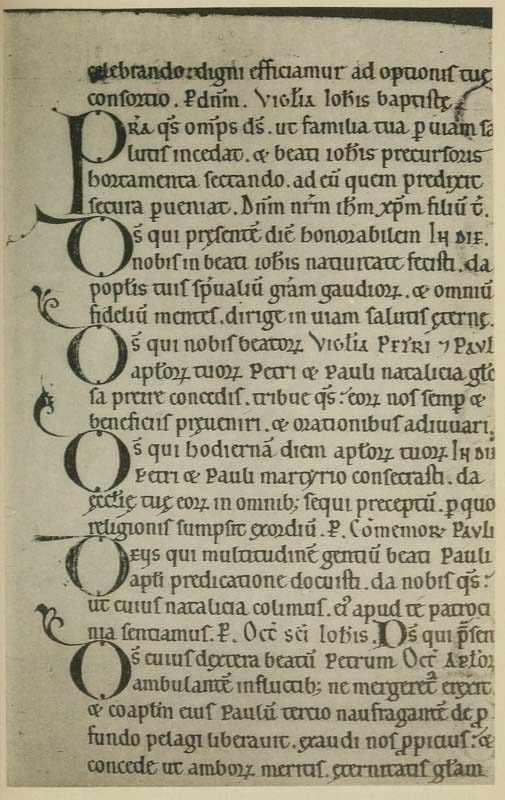 celebrando: digni efficiamur ad optionis tuę
consortio. P dn̄m. Viglia Ioh̄is baptistę
PRA q̄s om̄ps d̄s. ut familia tua p̱ uiam sa
lutis incedat. & beati ioh̄is precursoris
hortamenta sectando. ad eū quem predixit
secura p̱ueniat. Dn̄m nr̄m ih̄m xp̄m filiū t̄.
Ds̄ qui pręsentē diē honorabilem IN DIE.
nobis in beati ioh̄is natiuitate fecisti. da
popl̄is tuis sp̄ualiū gr̄am gaudioꝝ. & omniū
fideliū mentes. dirige in uiam salutis ęternę.
Ds̄ qui nobis beatoꝝ Viglia PETRI ⁊ PAVL
apl̄oꝝ tuoꝝ Petri & Pauli natalicia gl̄o
sa preire concedis. tribue q̄s: eoꝝ nos semp̱ &
beneficiis pręueniri. & orationibus adiuuari.
Ds̄ qui hodiernā diem apl̄oꝝ tuoꝝ IN DI
Petri & Pauli martyrio consecrasti. da
ęccl̄ię tuę eoꝝ in omnib; sequi preceptū. p̱ quos
religionis sumpsit exordiū. P. Cōmemor PAVLI
Ds̄ qui multitudinē gentiū beati Pauli
apl̄i predicatione docuisti. da nobis q̄s:
ut cuius natalicia colimus. ei᷒ apud te patroci
nia sentiamus. P. Oct̄ sc̄i Ioh̄is. Ds̄ qui p̄sen
Ds̄ cuius dextera beatū Petrum Oct̄ Apl̄oꝝ
ambulantē in fluctib; ne mergeret̄ erexit
& coapl̄m eius Paulū tercio naufragantē de p̱
fundo pelagi liberauit. exaudi nos p̱picius: &
concede ut amboꝝ meritis. ęternitatis gl̄am